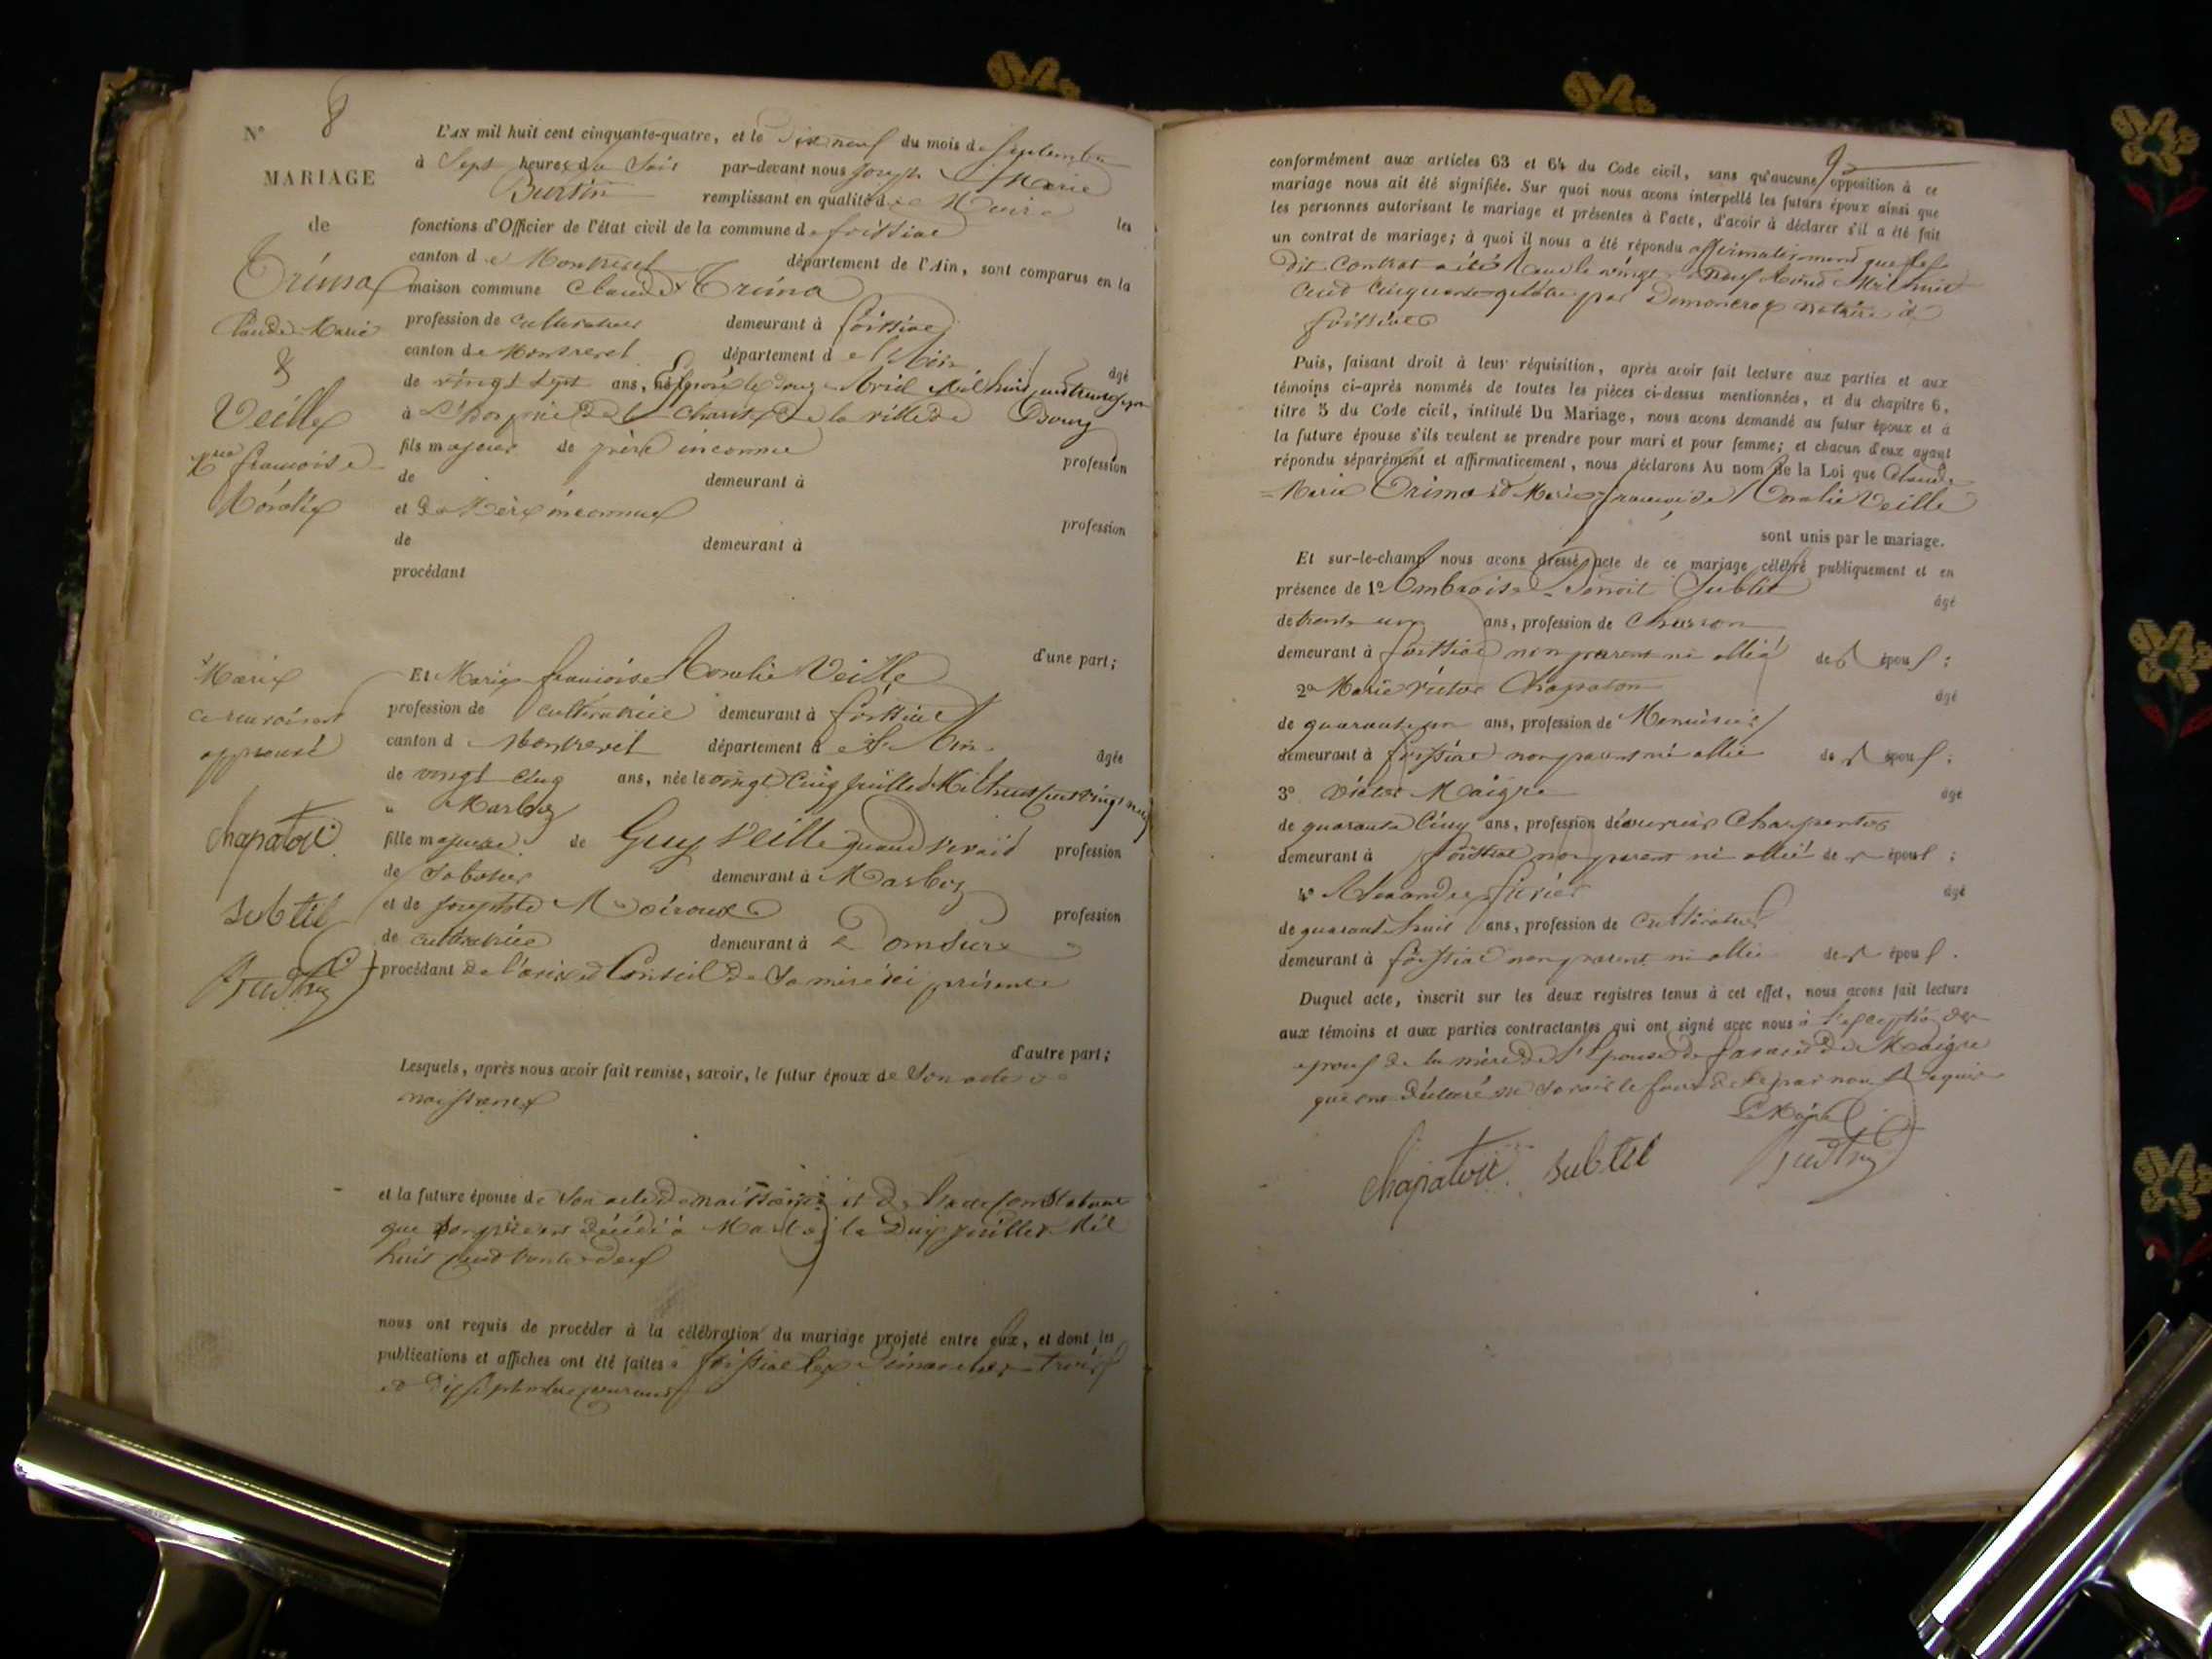 N° 8
MARIAGE
de
Tréma
Claude Marie
&
Veille
Françoise
L'AN mil huit cent cinquante-quatre, et le Dix neuf du mois de Septembre
à Sept heures du Soir par-devant nous Joseph Marie
Burtin remplissant en qualité de Maire les
fonctions d'Officier de l'état civil de la commune de foissiat
canton de Montrevel département de l'Ain, sont comparus en la
maison commune Claude + Tréma
profession de cultivateur demeurant à foissiat
canton de Montrevel département de l'Ain âgé
de vingt sept ans, le douze Avril Mil huit cent
à L'hospice de la Charité de la ville de Bourg
fils majeur de père inconnu profession
de demeurant à
et de Mère inconnue profession
de demeurant à
procédant
d'une part;
+ Marie
ce renvoi
approuvé
chapaton
subtil
Et Marie françoise Veille
profession de cultivatrice demeurant à foissiat
canton de Montrevel département de l'Ain âgée
de vingt cinq ans, née le vingt cinq juillet Mil huit cent vingt neuf
à Marboz
fille majeure de Guy Veille quand vivait profession
de Sabotier demeurant à Marboz
et de Josephte profession
de cultivatrice demeurant à Domsure
procédant de l'avis et Conseil de sa mère ici présente
d'autre part;
Lesquels, après nous avoir fait remise, savoir, le futur époux de Son acte de
naissance
et la future épouse de Son acte de naissance et de l'acte constatant
que son père est décédé à Marboz le Dix juillet Mil
huit cent trente deux
nous ont requis de procéder à la célébration du mariage projeté entre eux, et dont les
publications et affiches ont été faites à foissiat les Dimanches trois
et dix septembre courant
9
conformément aux articles 63 et 64 du Code civil, sans qu'aucune opposition à ce
mariage nous ait été signifiée. Sur quoi nous avons interpellé les futurs époux ainsi que
les personnes autorisant le mariage et présentes à l'acte, d'avoir à déclarer s'il a été fait
un contrat de mariage; à quoi il nous a été répondu affirmativement que le
dit Contrat a été reçu le vingt neuf Août Mil huit
cent cinquante-quatre par notaire à
foissiat
Puis, faisant droit à leur réquisition, après avoir fait lecture aux parties et aux
témoins ci-après nommés de toutes les pièces ci-dessus mentionnées, et du chapitre 6,
titre 5 du Code civil, intitulé Du Mariage, nous avons demandé au futur époux et à
la future épouse s'ils veulent se prendre pour mari et pour femme; et chacun d'eux ayant
répondu séparément et affirmativement, nous déclarons Au nom de la Loi que Claude
Marie Tréma et Marie françoise Veille
sont unis par le mariage.
Et sur-le-champ nous avons dressé acte de ce mariage célébré publiquement et en
présence de 1° Ambroise Benoit Subtil âgé
de trente un ans, profession de Charron
demeurant à foissiat non parent ni allié des époux;
2° Marie Victor Chapaton âgé
de quarante un ans, profession de Menuisier
demeurant à foissiat non parent ni allié des époux;
3° Victor Maigre âgé
de quarante Cinq ans, profession d'ouvrier Charpentier
demeurant à foissiat non parent ni allié des époux;
4° Alexandre âgé
de quarante huit ans, profession de Cultivateur
demeurant à foissiat non parent ni allié des époux.
Duquel acte, inscrit sur les deux registres tenus à cet effet, nous avons fait lecture
aux témoins et aux parties contractantes qui ont signé avec nous à l'exception des
époux de la mère de l'Epouse de et de Maigre
qui ont déclaré ne savoir le faire de ce par nous requis
Le Maire
chapaton subtil